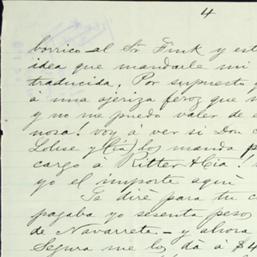 4
borrico al Sr Fink y est
idea que mandarle mi
traducida. Por supuesto
a una ojeriza feroz que
y no me puedo valer de e
nosa. Voy a ver si Don
y los manda
cargo á Ritter & Cia!
yo el importe aquí
Te diré para tu
pagaba yo sesenta pesos
de Navarrete — y ahora
Segura me los dá á $4